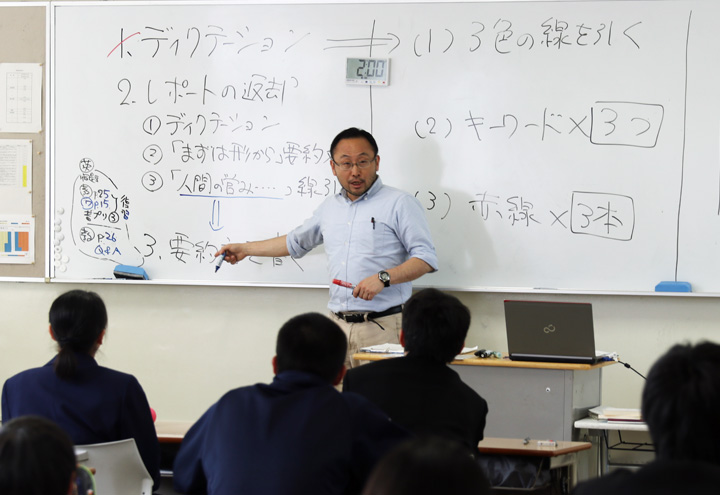 1. ディクテーション ⇒ (1) 3色の線を引く
2:00
2. レポートの返却
① ディクテーション
② 「まずは形から」要約
③ 「人間の営み……」線引
(2) キーワード×3つ
(3) 赤線×3本
3. 要約
英
p25
p15
アプリ③
復習
p.26
Q&A